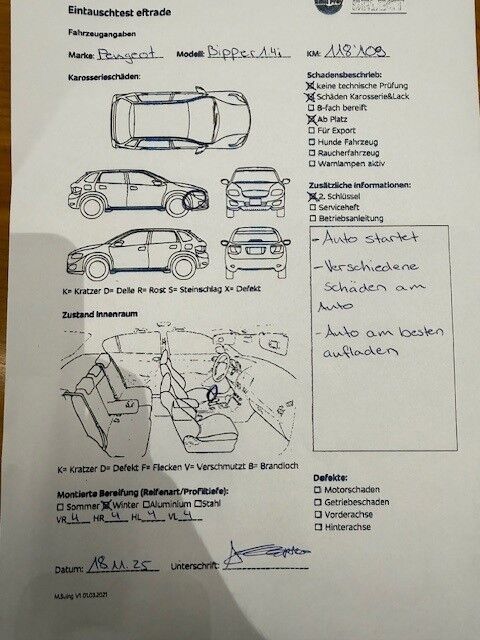 Eintauschtest eftrade
SELECT
Fahrzeugangaben
Marke: Peugeot Modell: Bipper 1.4i KM: 118'109
Karosserieschäden:
Schadensbeschrieb:
keine technische Prüfung
Schäden Karosserie&Lack
8-fach bereift
Ab Platz
Für Export
Hunde Fahrzeug
Raucherfahrzeug
Warnlampen aktiv
Zusätzliche Informationen:
2. Schlüssel
Serviceheft
Betriebsanleitung
- Auto startet
- Verschiedene
schäden am
Auto
- Auto am besten
aufladen
K= Kratzer D= Delle R= Rost S= Steinschlag X= Defekt
Zustand Innenraum
K= Kratzer D= Defekt F= Flecken V= Verschmutzt B= Brandloch
Montierte Bereifung (Reifenart/Profiltiefe):
Sommer Winter Aluminium Stahl
VR 4 HR 4 HL 4 VL 4
Defekte:
Motorschaden
Getriebeschaden
Vorderachse
Hinterachse
Datum: 18.11.25 Unterschrift:
M.Suing V1 01.03.2021